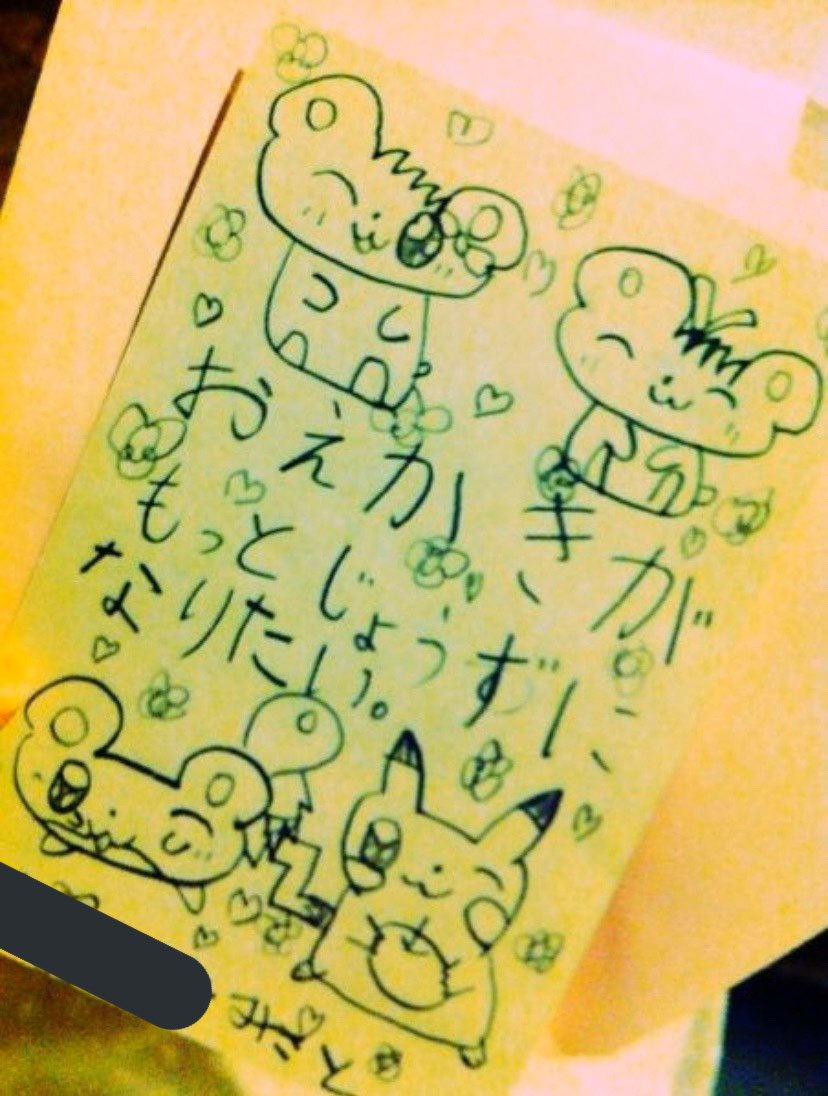 おえかきが
もっとじょうずに
なりたい。